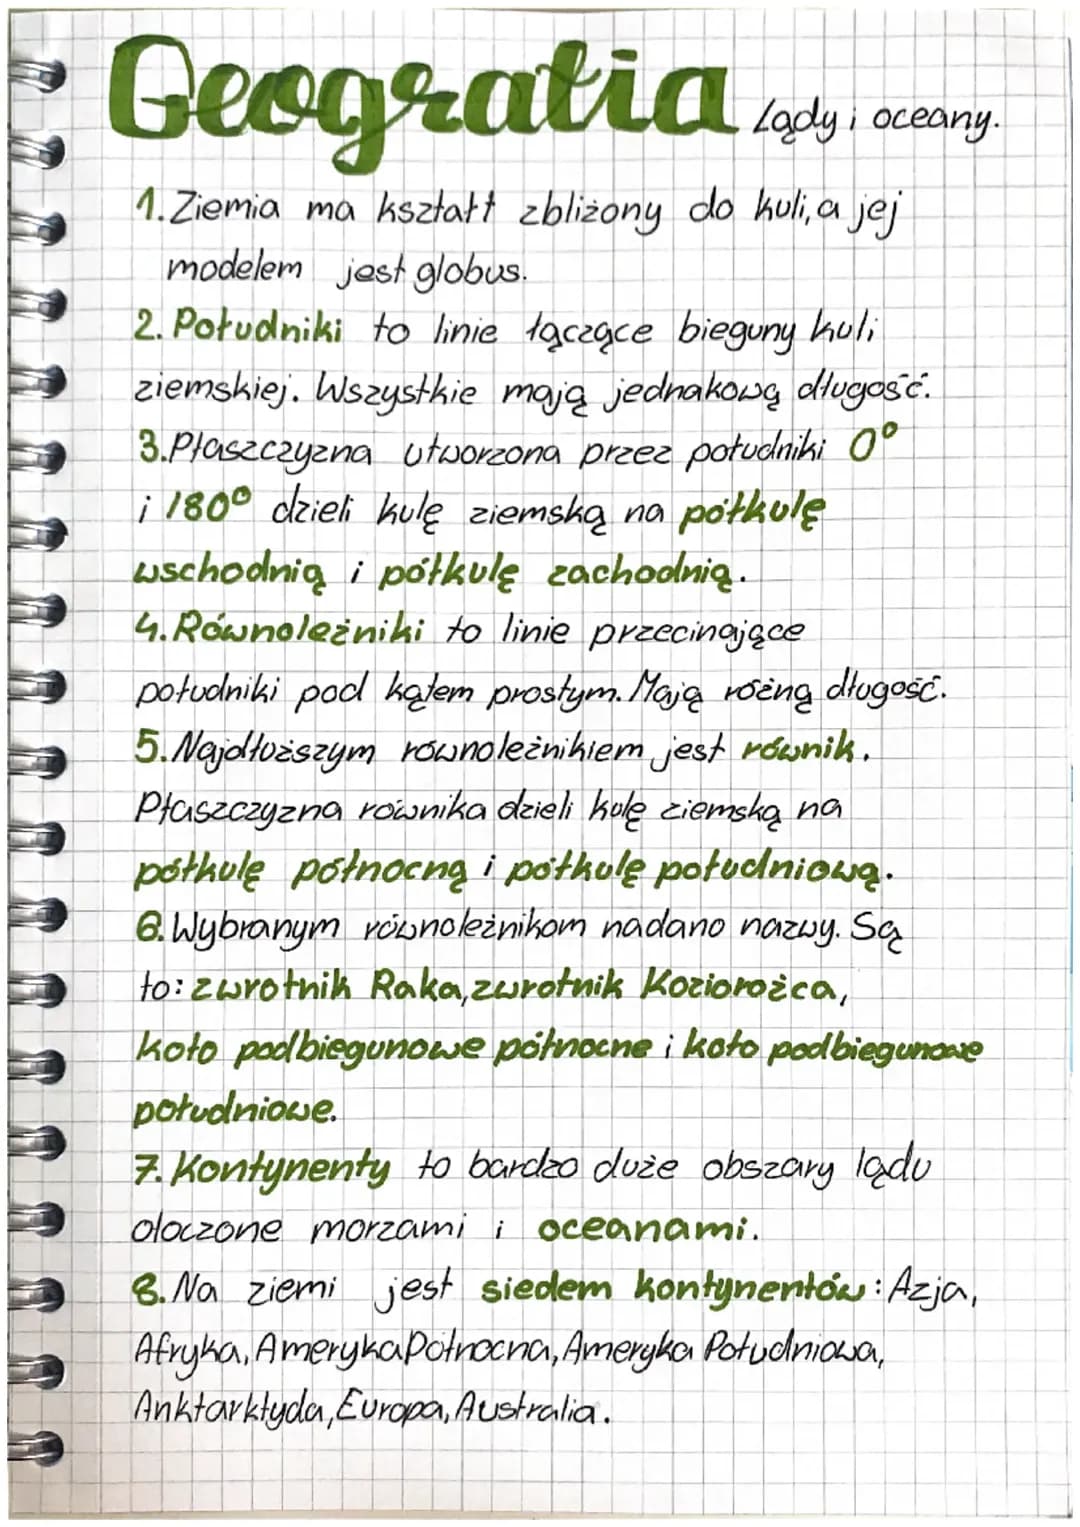 Geografia Lądy i oceany.
1. Ziemia ma kształt zbliżony do kuli, a jej
modelem jest globus.
2. Południki to linie łączące bieguny kuli
ziemskiej. Wszystkie mają jednakową długość.
3. Płaszczyzna utworzona przez południki 0°
i 180° dzieli kulę ziemską na półkulę
wschodnią i półkulę zachodnią.
4. Równoleżniki to linie przecinające
południki pod kątem prostym. Mają różną długość.
5. Najdłuższym równoleżnikiem jest równik.
Płaszczyzna równika dzieli kulę ziemską na
półkulę północną i półkulę południową.
6. Wybranym równoleżnikom nadano nazwy. Są
to: zwrotnik Raka, zwrotnik Koziorożca,
koło podbiegunowe północne i koło podbiegunowe
południowe.
7. Kontynenty to bardzo duże obszary lądu
otoczone morzami i oceanami.
8. Na ziemi jest siedem kontynentów: Azja,
Afryka, Ameryka Północna, Ameryka Południowa,
Anktarktyda, Europa, Australia.